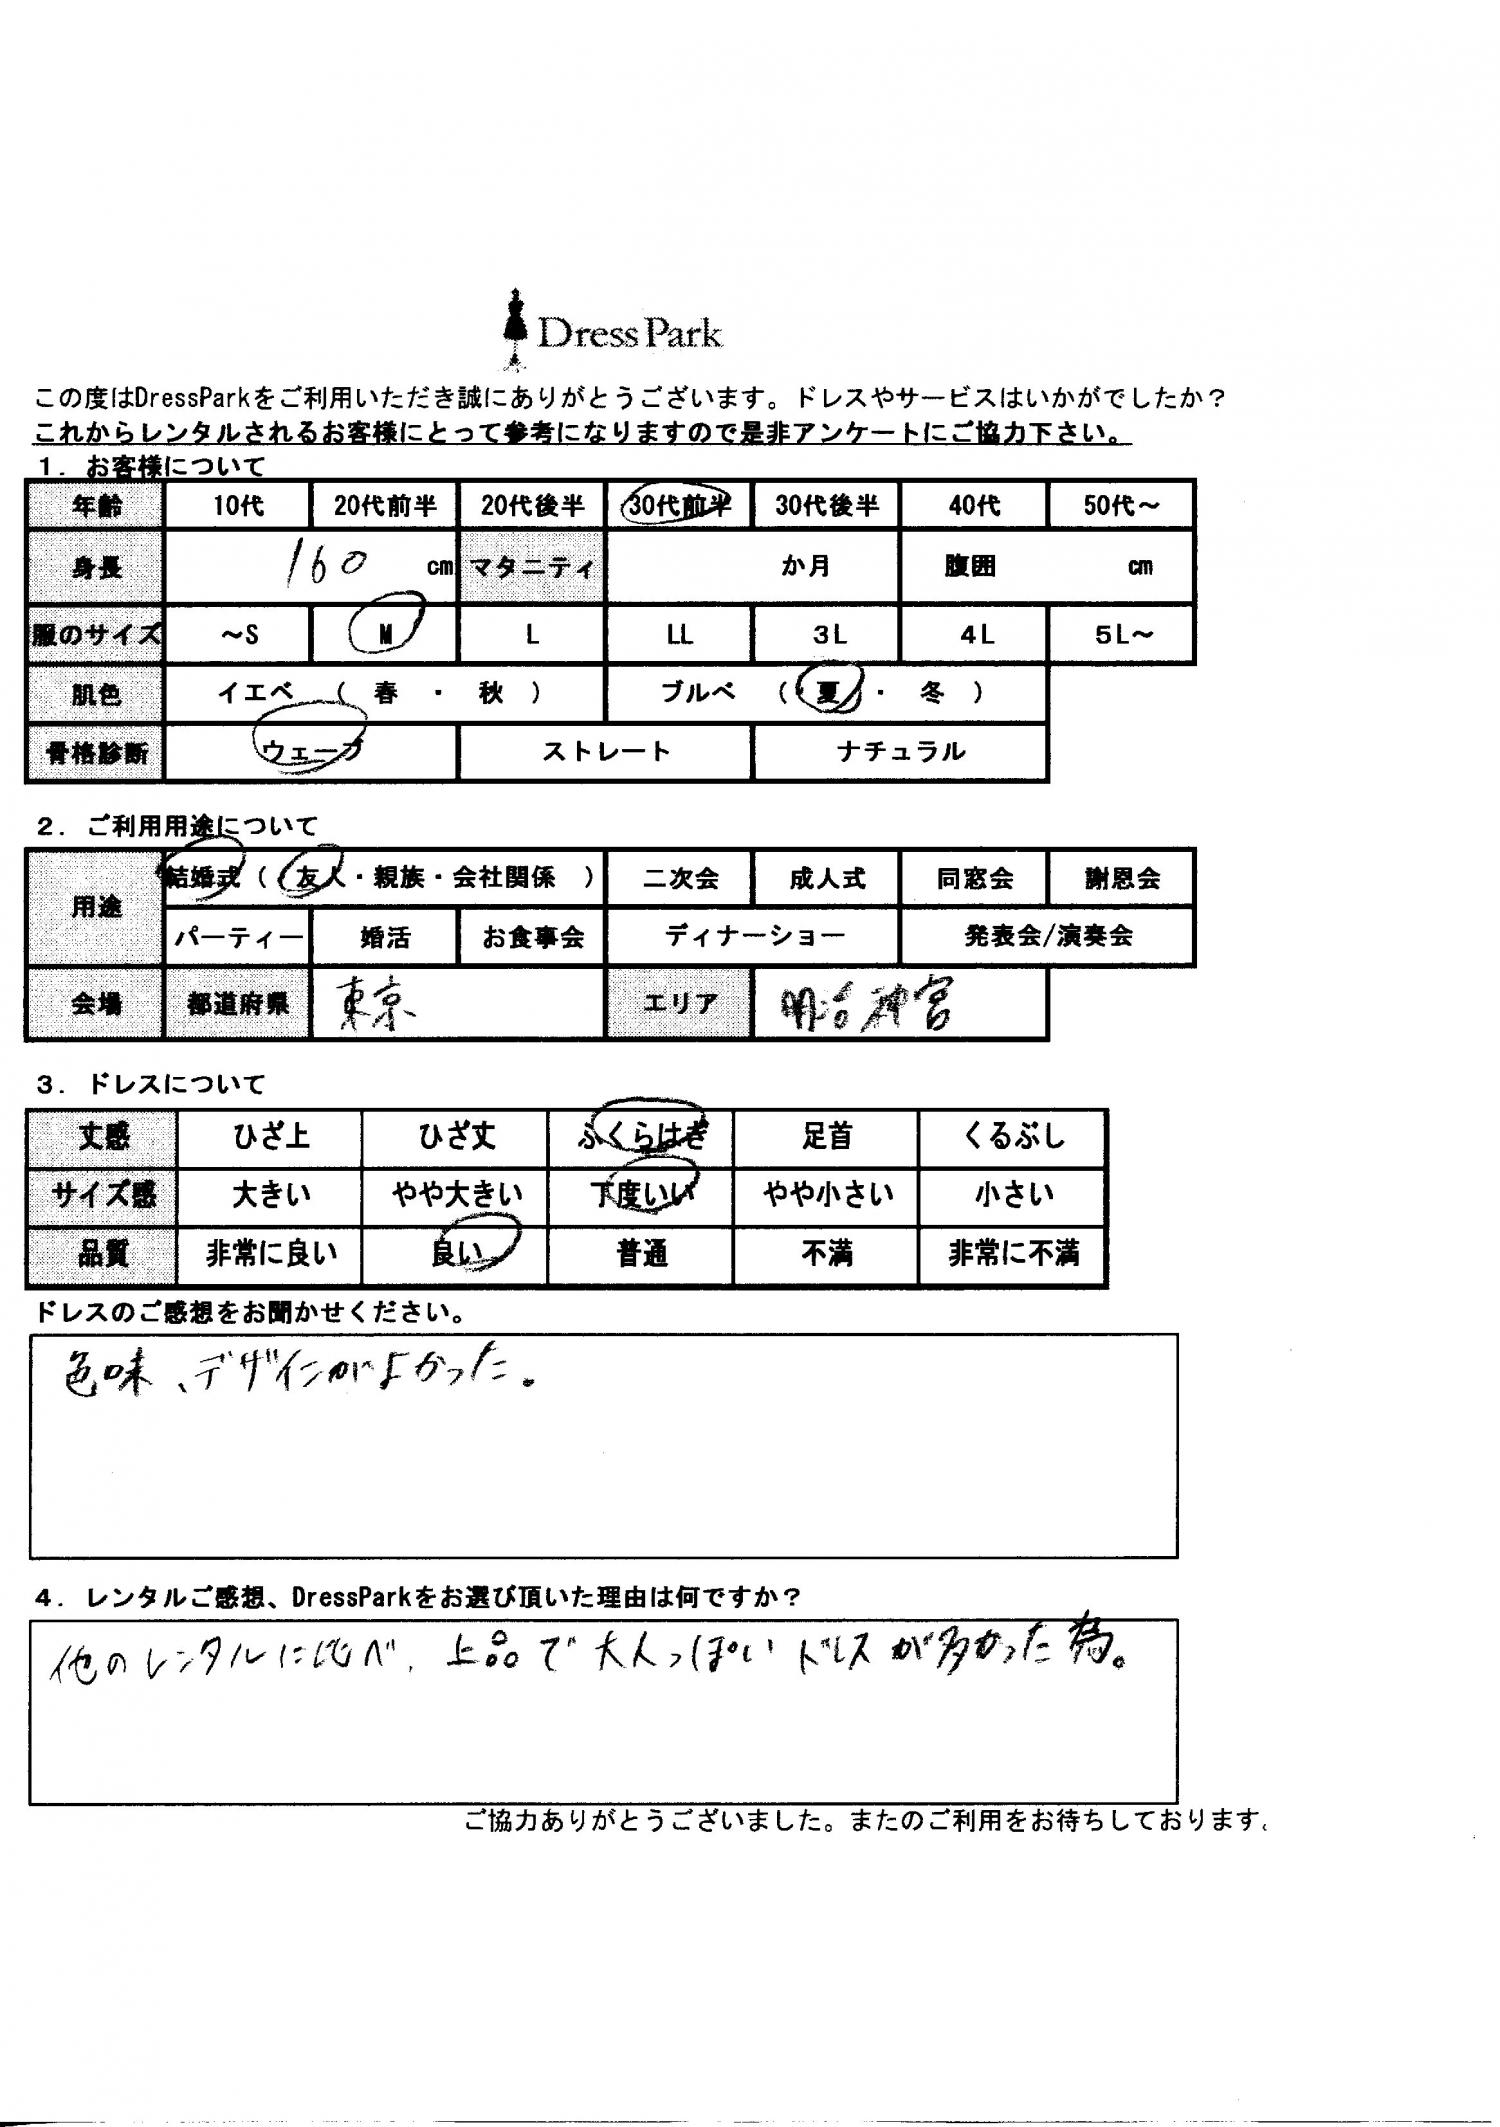 Dress Park
この度はDressParkをご利用いただき誠にありがとうございます。ドレスやサービスはいかがでしたか？
これからレンタルされるお客様にとって参考になりますので是非アンケートにご協力下さい。
１．お客様について
年齢 10代 20代前半 20代後半 30代前半 30代後半 40代 50代～
身長 160 cm マタニティ か月 腹囲 cm
服のサイズ ～S M L LL 3L 4L 5L～
肌色 イエベ （ 春 ・ 秋 ） ブルベ （ ・夏 ・ 冬 ）
骨格診断 ウェーブ ストレート ナチュラル
２．ご利用用途について
用途 結婚式（ 友人・親族・会社関係 ） 二次会 成人式 同窓会 謝恩会
パーティー 婚活 お食事会 ディナーショー 発表会/演奏会
会場 都道府県 東京 エリア 明治神宮
３．ドレスについて
丈感 ひざ上 ひざ丈 ふくらはぎ 足首 くるぶし
サイズ感 大きい やや大きい 丁度いい やや小さい 小さい
品質 非常に良い 良い 普通 不満 非常に不満
ドレスのご感想をお聞かせください。
色味、デザインがよかった。
４．レンタルご感想、DressParkをお選び頂いた理由は何ですか？
他のレンタルに比べ、上品で大人っぽいドレスが多かった為。
ご協力ありがとうございました。またのご利用をお待ちしております。